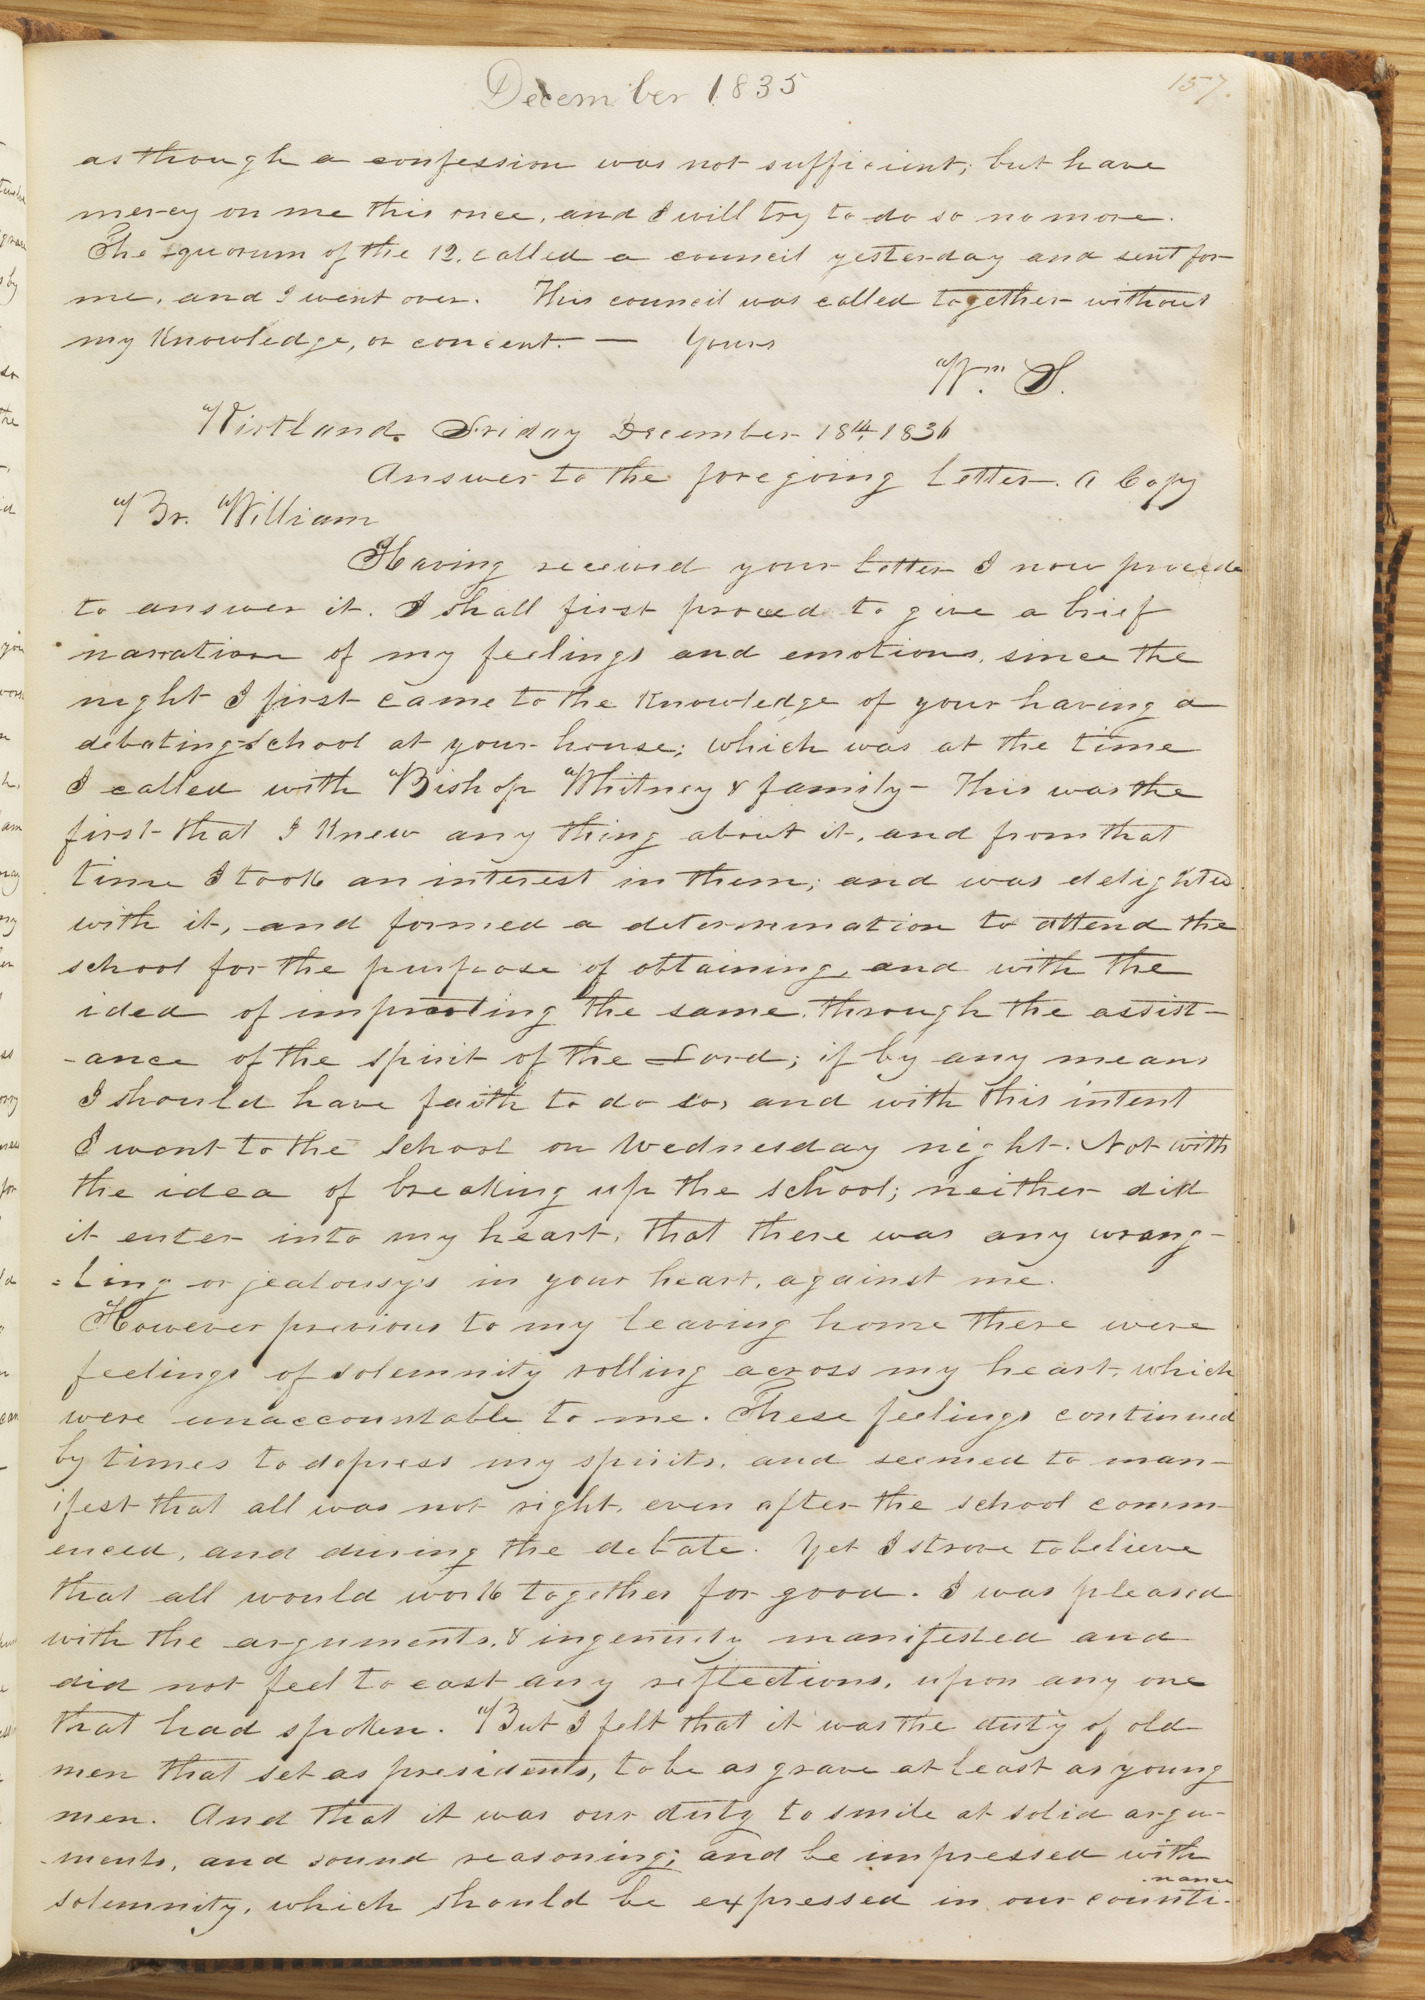 December 1835
157.
as though a confession was not sufficient; but have
mercy on me this once, and I will try to do so no more.
The quorum of the 12, called a council yesterday and sent for
me, and I went over. This council was called together without
my knowledge, or concent. — Yours
Wm S.
Kirtland. Friday December 18th 1836
Answer to the foregoing letter. A Copy
Br. William
Having received your letter I now procede
to answer it. I shall first proceed to give a brief
narration of my feelings and emotions, since the
night I first came to the knowledge of your having a
debating-School at your house; which was at the time
I called with Bishop Whitney & family- This was the
first that I knew any thing about it, and from that
time I took an interest in them; and was delighted
with it, and formed a determination to attend the
school for the purpose of obtaining, and with the
idea of imparting the same, through the assist-
-ance of the spirit of the Lord; if by any means
I should have faith to do so, and with this intent
I went to the School on Wednesday night. Not with
the idea of breaking up the school; neither did
it enter into my heart, that there was any wrang-
=ling or jealousy's in your heart, against me.
However previous to my leaving home there were
feelings of solemnity rolling across my heart, which
were unaccountable to me. These feelings continued
by times to depress my spirits, and seemed to man-
ifest that all was not right, even after the school comm-
enced, and during the debate. Yet I strove to believe
that all would work together for good. I was pleased
with the arguments, & ingenuity manifested and
did not feel to cast any reflections, upon any one
that had spoken. But I felt that it was the duty of old
men that set as presidents, to be as grave at least as young
men. And that it was our duty to smile at solid argu-
-ments, and sound reasoning; and be impressed with
solemnity, which should be expressed in our counti-
nance